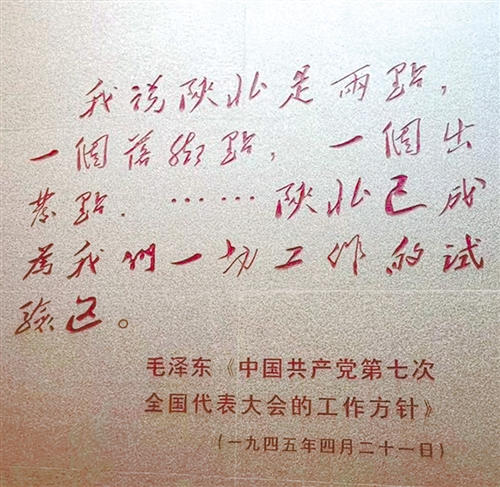 我说陝北是兩點，
一個落腳點，一個出
發點．……陝北已成
為我們一切工作的試
驗区。
毛泽东《中国共产党第七次
全国代表大会的工作方针》
(一九四五年四月二十一日)